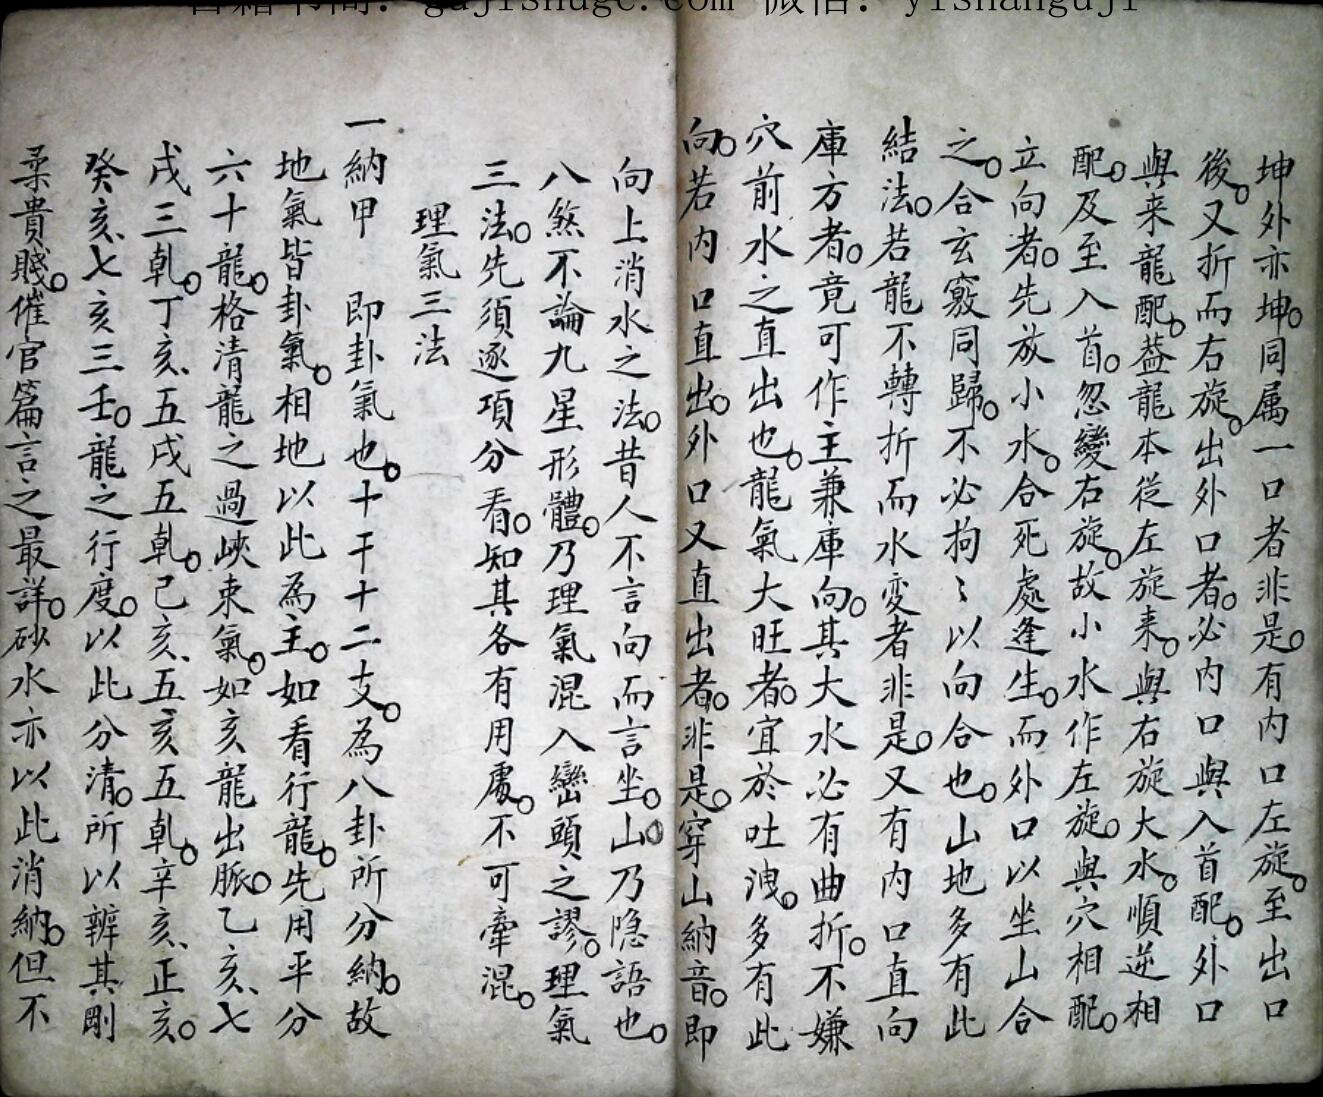 書籍书阁：gujishuge.com 微信：yishanguji
坤外亦坤。同属一口者非是。有内口左旋。至出口
後。又折而右旋。出外口者。必内口與入首配。外口
與来龍配。葢龍本從左旋来。與右旋大水。順逆相
配。及至入首。忽變右旋。故小水作左旋。與穴相配。
立向者。先放小水。合死處逢生。而外口以坐山合
之。合玄竅同歸。不必拘〻以向合也。山地多有此
結法。若龍不轉折而水变者非是。又有内口直向
庫方者。竟可作主兼庫向。其大水必有曲折。不嫌
穴前水之直出也。龍氣大旺者。宜於吐洩。多有此
向。若内口直出。外口又直出者。非是。穿山納音。即
向上消水之法。昔人不言向而言坐。山。乃隐語也。
八煞不論九星形體。乃理氣混入巒頭之謬。理氣
三法。先須逐項分看。知其各有用處。不可牽混。
理氣三法
一納甲　即卦氣也。十干十二支。為八卦所分納。故
地氣皆卦氣。相地以此為主。如看行龍。先用平分
六十龍。格清龍之過峽束氣。如亥龍出脈。乙亥、七
戌三乹。丁亥、五戌五乹。己亥、五亥五乹。辛亥、正亥。
癸亥、七亥三壬。龍之行度。以此分清。所以辨其剛
柔貴賤。催官篇言之最詳。砂水亦以此消納。但不